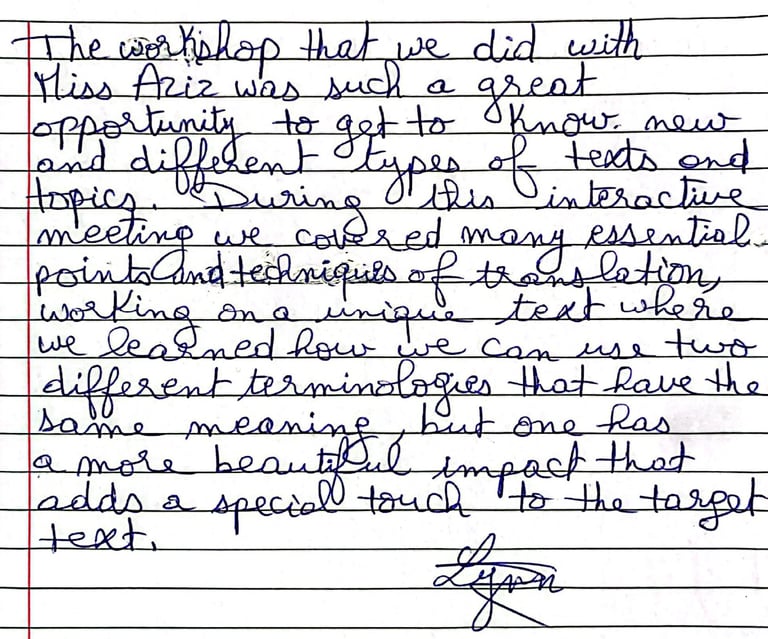 The workshop that we did with
Miss Aziz was such a great
opportunity to get to know new
and different types of texts and
topics. During this interactive
meeting we covered many essential
points and techniques of translation,
working on a unique text where
we learned how we can use two
different terminologies that have the
same meaning, but one has
a more beautiful impact that
adds a special touch to the target
text.
Lynn